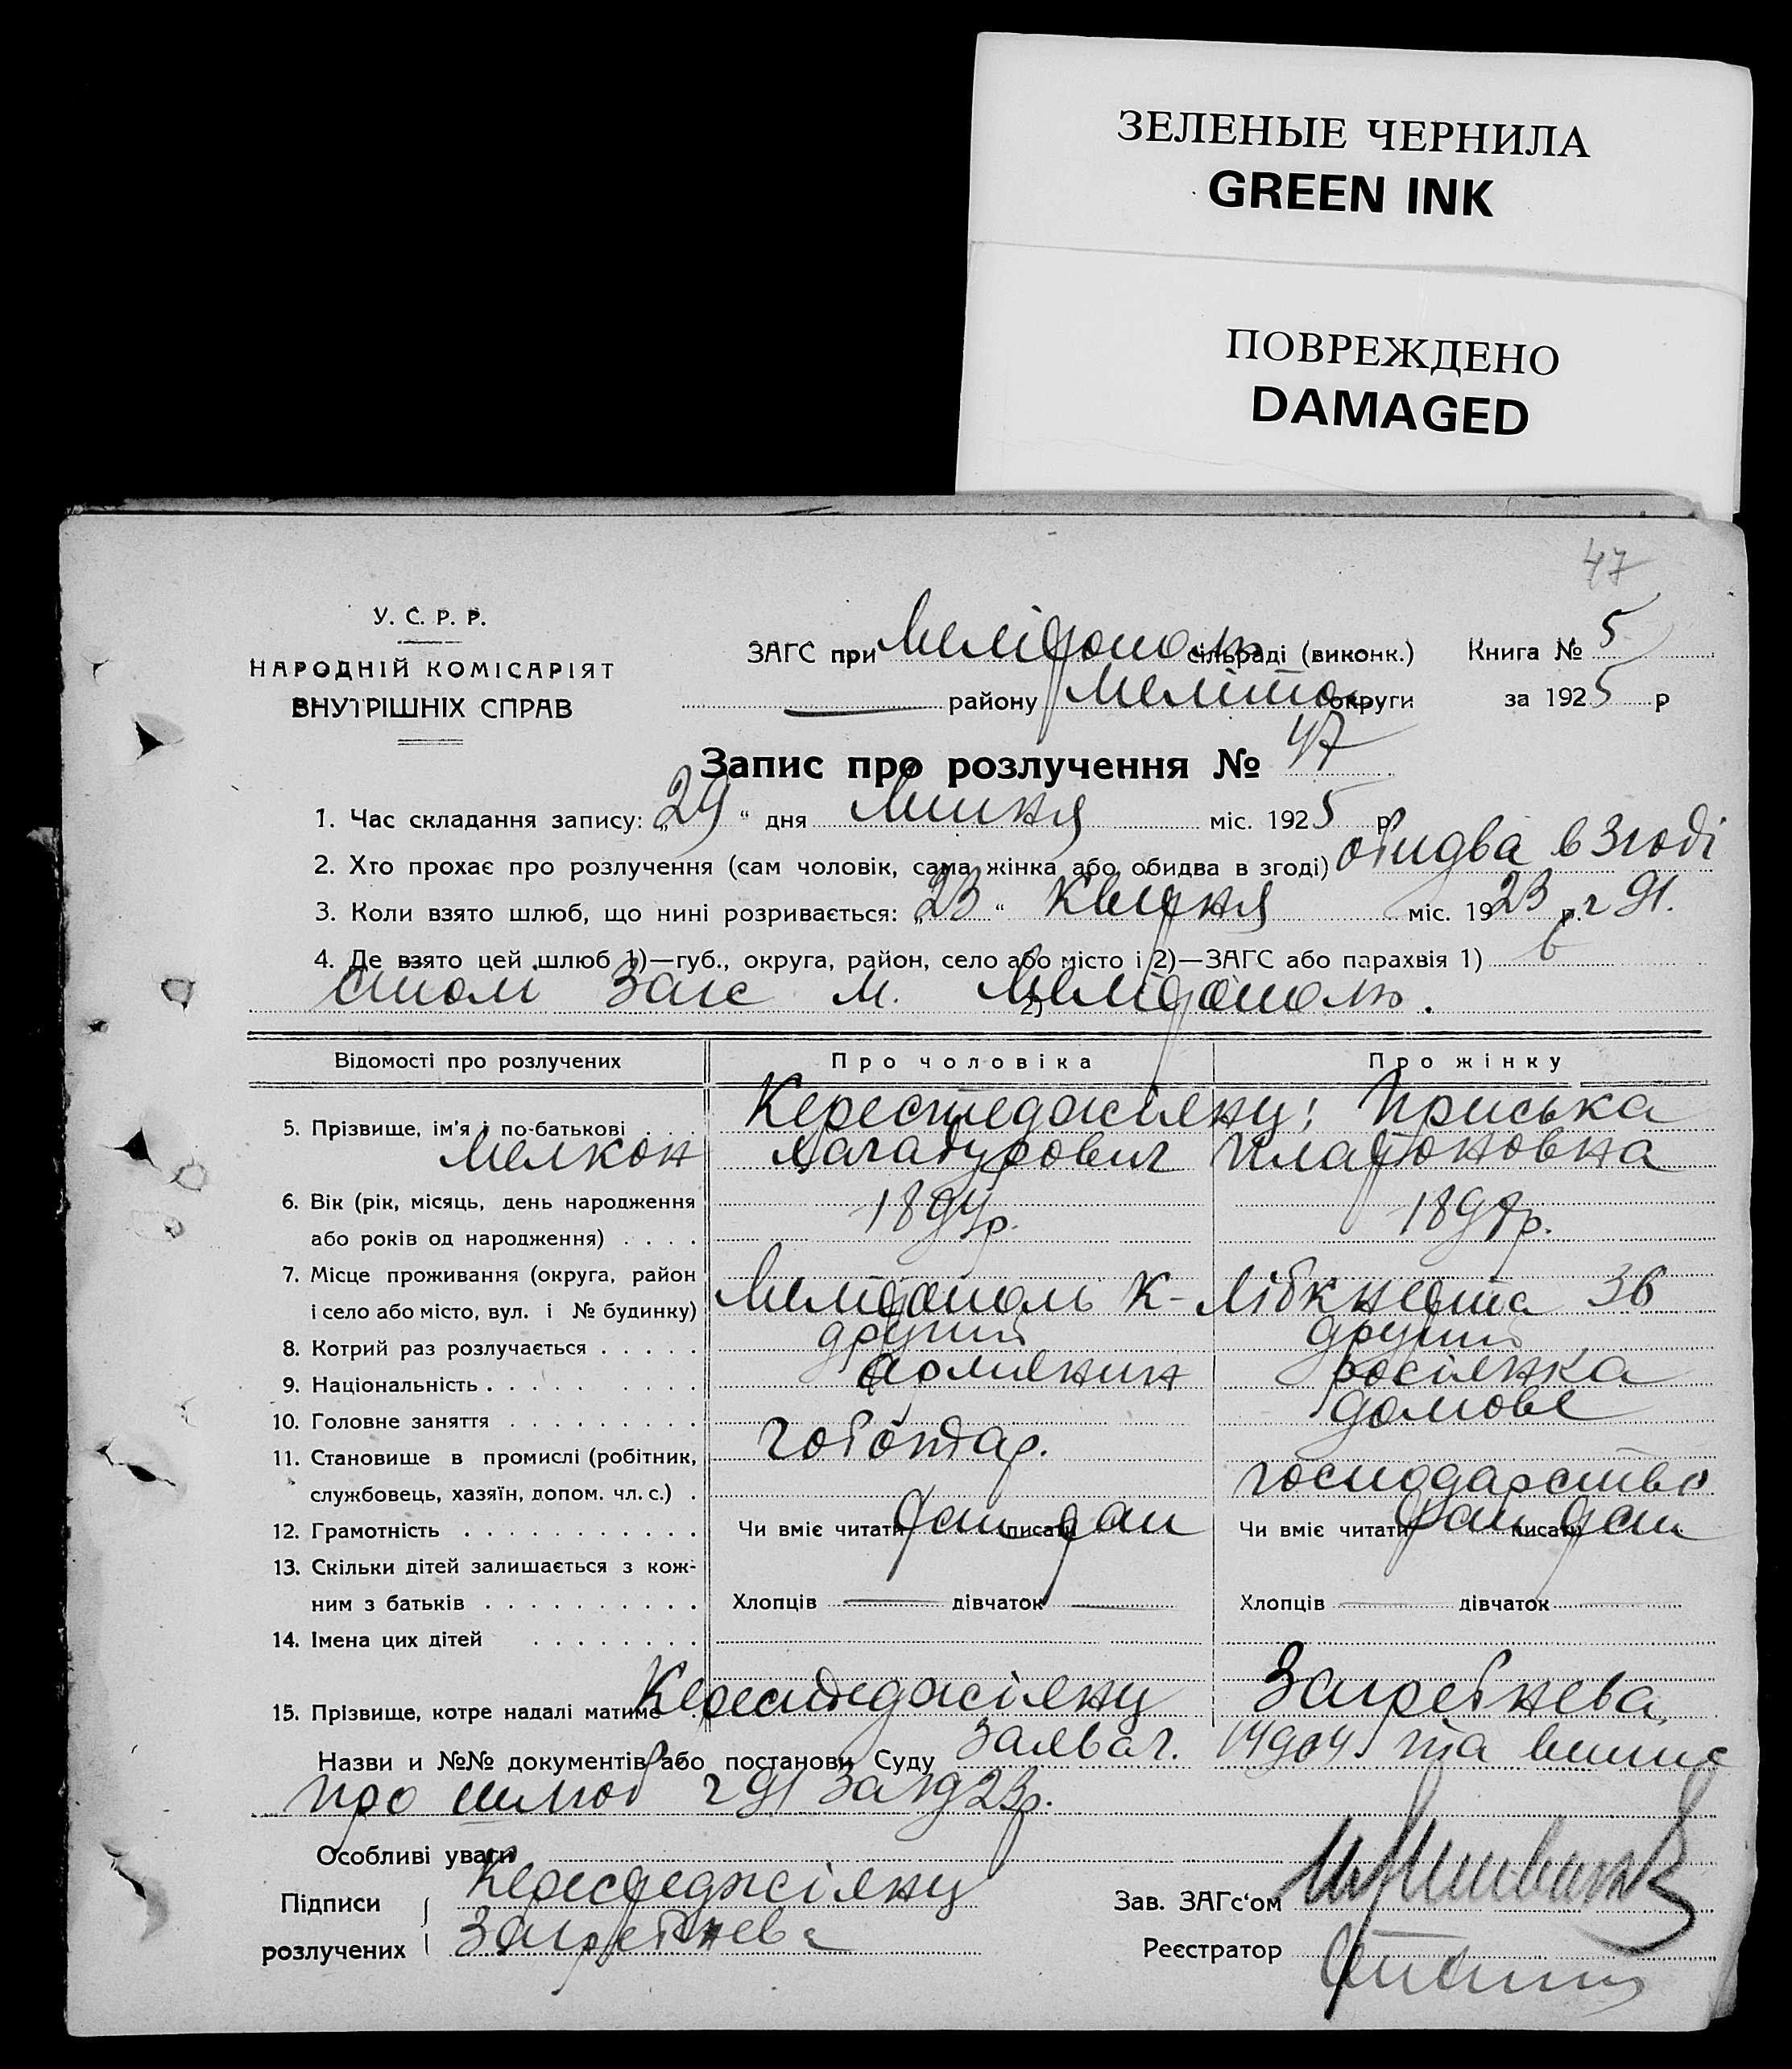 ЗЕЛЕНЫЕ ЧЕРНИЛА
GREEN INK
ПОВРЕЖДЕНО
DAMAGED
47
У. С. Р. Р.
НАРОДНІЙ КОМІСАРІЯТ
ВНУТРІШНІХ СПРАВ
ЗАГС при Мелітополь сільраді (виконк.) Книга № 5
району Меліто округи за 1925 р
Запис про розлучення № 47
1. Час складання запису: „29 “ дня Липня міс. 1925 р
2. Хто прохає про розлучення (сам чоловік, сама жінка або обидва в згоді) обидва в згоді
3. Коли взято шлюб, що нині розривається: „23 “ Квітня міс. 1923 р. ч 91.
4. Де взято цей шлюб 1)—губ., округа, район, село або місто і 2)—ЗАГС або парахвія 1) в
столі Загс м. 2) Мелітополь.
Відомості про розлучених Про чоловіка Про жінку
5. Прізвище, ім'я і по-батькові Керестеджіянц: Приська
Мелкон Хачатурович Платоновна
6. Вік (рік, місяць, день народження
або років од народження) 1894р. 1897р.
7. Місце проживання (округа, район
і село або місто, вул. і № будинку) Мелітополь К-Лібкнехта 36
8. Котрий раз розлучається другий другий
9. Національність армянин росіянка
10. Головне заняття домове
11. Становище в промислі (робітник, чоботар.
службовець, хазяїн, допом. чл. с.) господарство
12. Грамотність Чи вміє читати так писати так Чи вміє читати так писати так
13. Скільки дітей залишається з кож-
ним з батьків Хлопців — дівчаток — Хлопців — дівчаток —
14. Імена цих дітей
15. Прізвище, котре надалі матиме Керестеджіянц Загребнева,
Назви и №№ документів або постанови Суду заява ч. та випис
про шлюб ч 91 за 1923р.
Особливі уваги
Підписи Керестеджіянц Зав. ЗАГс'ом
розлучених Загребнева Реєстратор